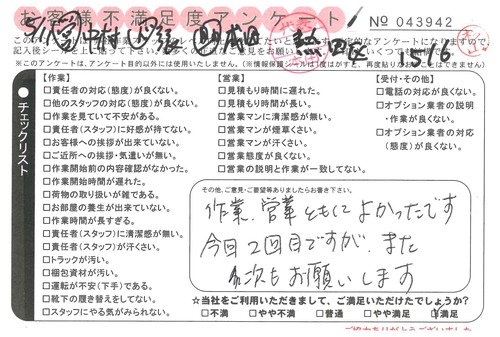 お客様不満足度アンケート
No 043942
【作業】
□責任者の対応(態度)が良くない。
□他のスタッフの対応(態度)が良くない。
□作業を見ていて不安がある。
□責任者(スタッフ)に好感が持てない。
□お客様への挨拶が出来ていない。
□ご近所への挨拶・気遣いが無い。
□作業開始前の内容確認がなかった。
□作業開始時間が遅れた。
□荷物の取り扱いが雑である。
□お部屋の養生が出来ていない。
□作業時間が長すぎる。
□責任者(スタッフ)に清潔感が無い。
□責任者(スタッフ)が汗くさい。
□トラックが汚い。
□梱包資材が汚い。
□運転が不安(下手)である。
□靴下の履き替えをしてない。
□スタッフにやる気がみられない。
【営業】
□見積もり時間に遅れた。
□見積もり時間が長い。
□営業マンに清潔感が無い。
□営業マンが煙草くさい。
□営業マンが汗くさい。
□営業態度が良くない。
□営業の説明と作業が一致してない。
【受付・その他】
□電話の対応が良くない。
□オプション業者の説明
・作業が良くない。
□オプション業者の対応
(態度)が良くない。
チェックリスト
その他、ご意見・ご要望等ありましたらお書き下さい。
作業、営業ともによかったです
今日2回目ですが、また
次もお願いします
☆当社をご利用いただきまして、ご満足いただけたでしょうか?
□不満 □やや不満 □普通 □やや満足 □満足
ご協力ありがとうございました